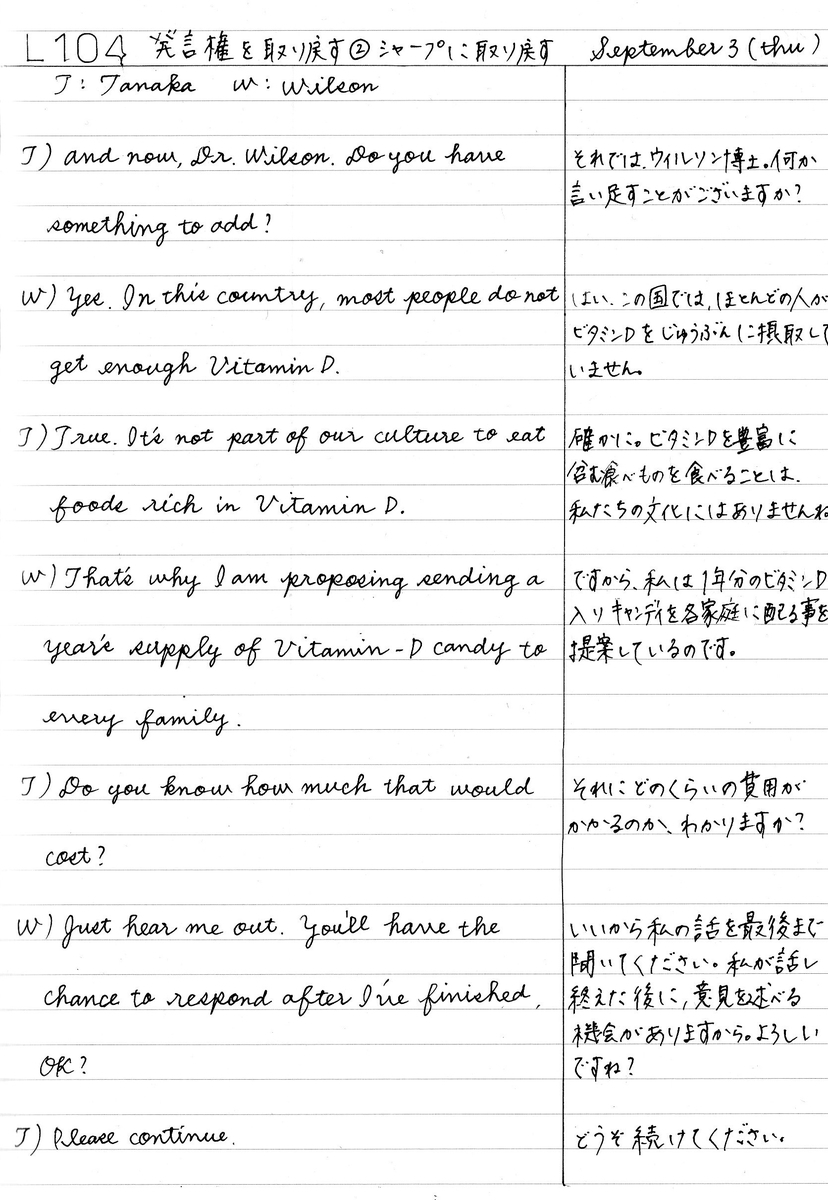 L104 発言権を取り戻す② シャープに取り戻す September 3 (thu)
T: Tanaka W: Wilson
T) And now, Dr. Wilson. Do you have
something to add?
それでは、ウィルソン博士。何か
言い足すことがございますか?
W) Yes. In this country, most people do not
get enough Vitamin D.
はい。この国では、ほとんどの人が
ビタミンDをじゅうぶんに摂取して
いません。
T) True. It's not part of our culture to eat
foods rich in Vitamin D.
確かに。ビタミンDを豊富に
含む食べものを食べることは、
私たちの文化にはありませんね
W) That's why I am proposing sending a
year's supply of Vitamin-D candy to
every family.
ですから、私は1年分のビタミンD
入りキャンディを各家庭に配る事を
提案しているのです。
T) Do you know how much that would
cost?
それにどのくらいの費用が
かかるのか、わかりますか?
W) Just hear me out. You'll have the
chance to respond after I've finished,
OK?
いいから私の話を最後まで
聞いてください。私が話し
終えた後に、意見を述べる
機会がありますから。よろしい
ですね?
T) Please continue.
どうぞ続けてください。